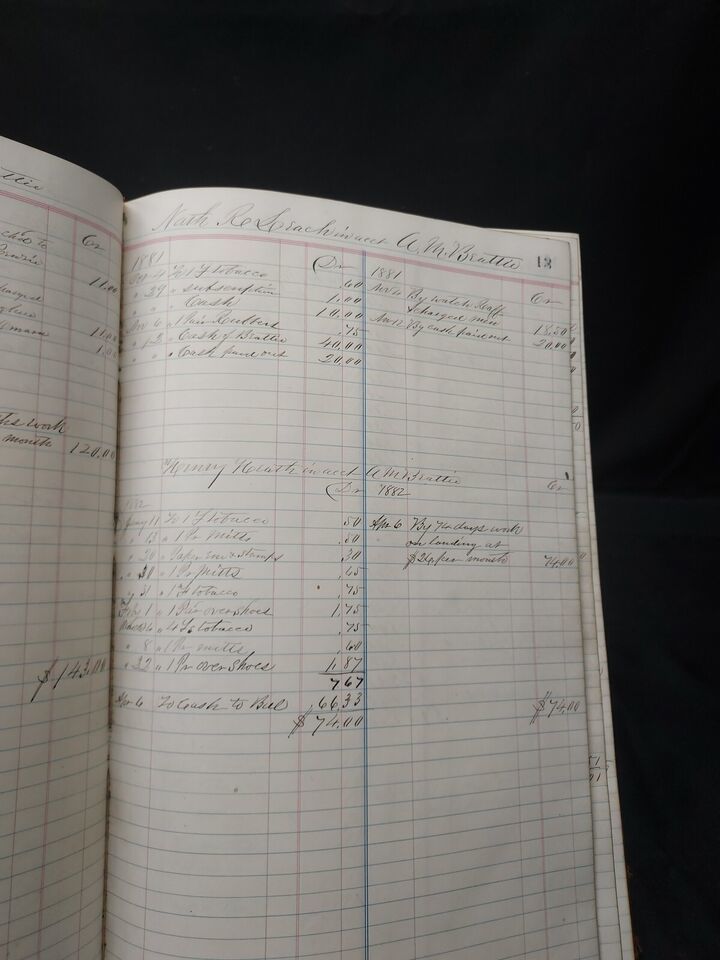 ttie
Cr
ch'd to
11.00
11.00
1.00
work
month 120.00
$143.00
Nath R Leach in acct A.M. Beattie 13
1881 Dr
4 To 1 # tobacco .60
" 29 " subscription 1.00
" " " Cash 10.00
Nov 6 " 1 Pair Rubbers .75
" 12 " Cash of Beattie 40.00
" " " Cash paid out 20.00
1881 Cr
By watch
charged 18.50
Nov 12 By cash paid 20.00
Henry Heath in acct A M Beattie
Dr 1882 Cr
1882
Jany 11 To 1 # tobacco .50
" 13 " 1 Pr Mitts
" 20 " Paper Env & Stamps .30
" 30 " 1 Pr Mitts
" 31 " 1 # tobacco .75
Feby 1 " 1 Pair over shoes 1.75
" tobacco .75
" 8 " 1 Pr mitts .60
" 22 " 1 Pr over shoes 1.87
7.67
Apr 6 To Cash to Bal 66.33
$74.00
Apr 6 By days work
on landing at
$26 per month 74.00
$74.00